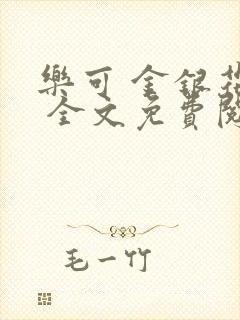 樂可 金銀花
全文免費閱
毛一竹